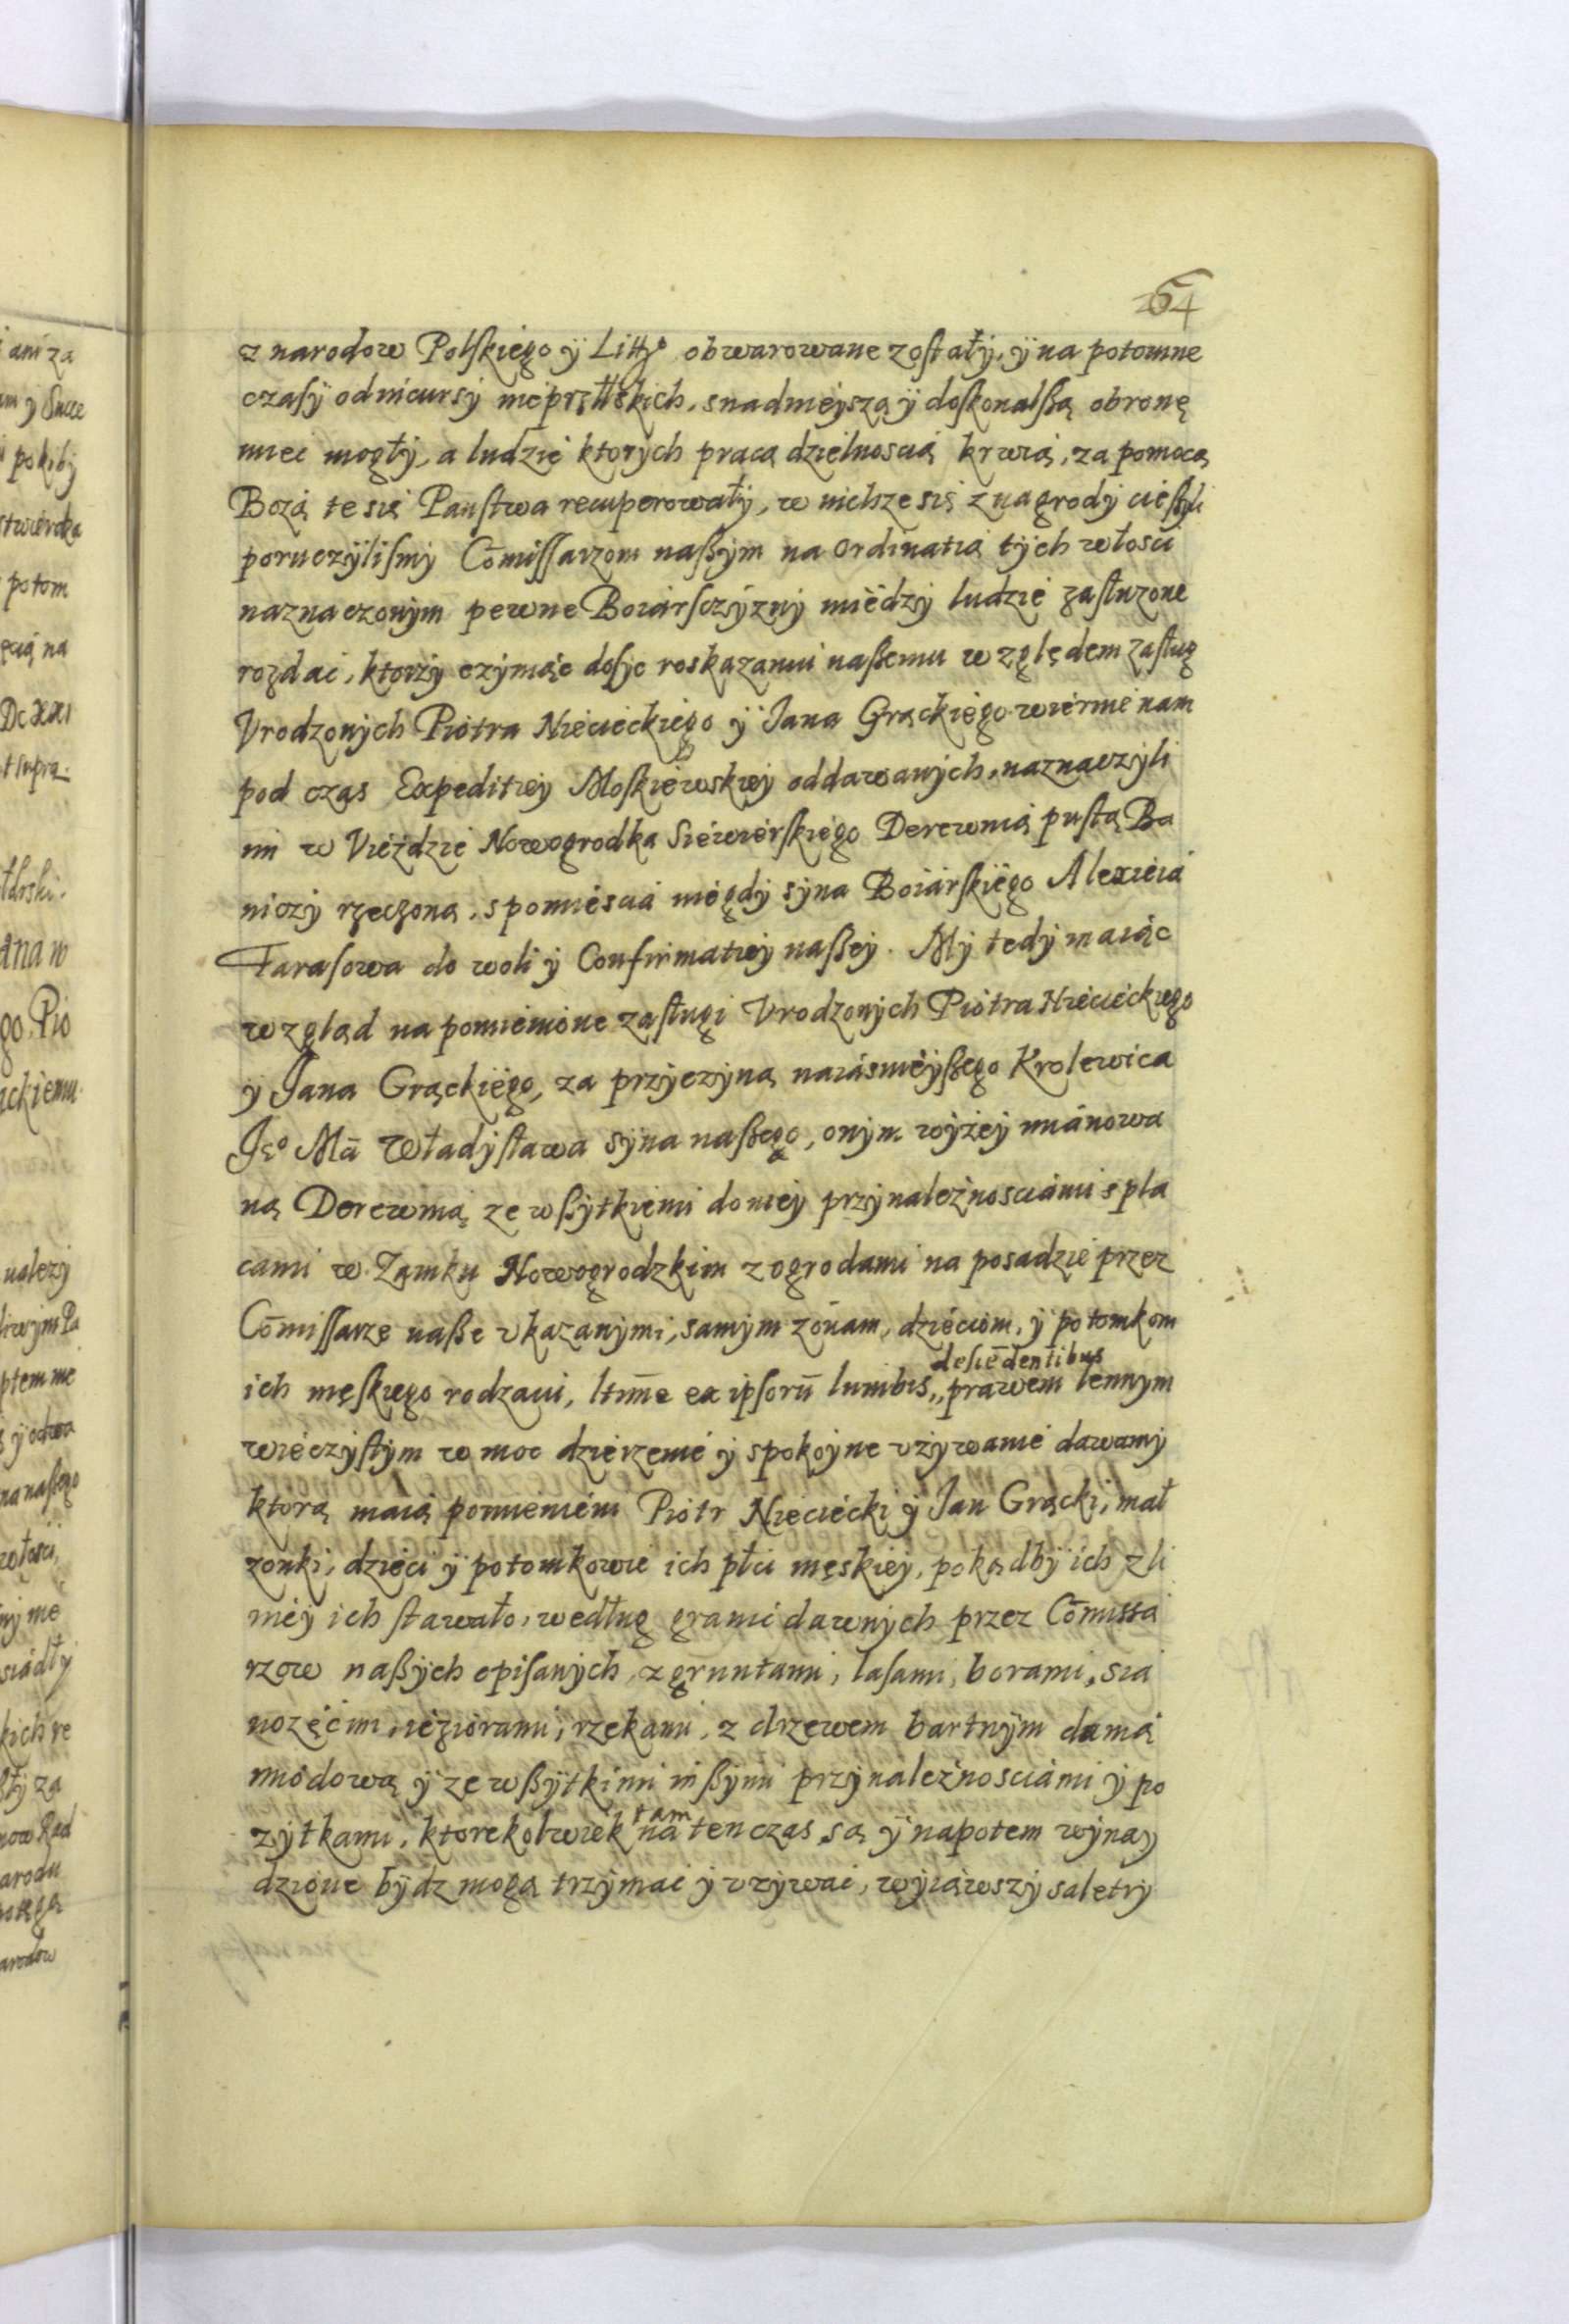 264
z narodow Polskiego ÿ Littgo obwarowane zostałÿ, ÿ na potomne
czasÿ od incursÿ nieprzttskich, snadnieÿszą ÿ doskonalßą obronę
miec mogłÿ, a ludzie ktorÿch pracą dzielnoscią krwią, za pomocą
Bozą te się Panstwa recuperowałÿ, w nichze się z nagrodÿ cießÿli
poruczÿlismÿ Cōmissarzom naßÿm na Ordinatią tÿch włosci
naznaczonÿm pewne Boiarsczÿznÿ międzÿ ludzie zasłuzone
rozdac, ktorzÿ czÿniąc dosÿc roskazaniu naßemu względem zasług
Vrodzonÿch Piotra Niecieckiego ÿ Jana Grąckiego wiernie nam
pod czas Expeditieÿ Moskiewskieÿ oddawanÿch, naznaczÿli
im w Vieździe Nowogrodka Siewierskiego Derewnią pustą Ba
niczÿ rzeczoną, s pomiescia niegdÿ sÿna Boiarskiego Alexieia
Tarasowa do woli ÿ Confirmatieÿ naßeÿ. Mÿ tedÿ maiąc
wzgląd na pomienione zasługi Vrodzonÿch Piotra Niecieckiego
ÿ Jana Grąckiego, za przÿczÿną naiasnieÿßego Krolewica
Jeo Mā Władÿsława sÿna naßego, onÿm wÿżeÿ mianowa
ną Derewnią ze wßÿtkiemi do nieÿ przÿnależnosciami s pla
cami w Zamku Nowogrodzkim z ogrodami na posadzie przez
Cōmissarze naße vkazanÿmi, samÿm zónam, dzieciom, ÿ potomkom
desiēdentibus
ich męskiego rodzaiu, ltīme ex ipsorū lumbis,, prawem lennÿm
wieczÿstÿm w moc dzierzenie ÿ spokoÿne vżÿwanie dawamÿ
ktorą maią pomienieni Piotr Nieciecki ÿ Jan Grącki, mał
zonki, dzieci ÿ potomkowie ich płci męskieÿ, pokądbÿ ich z li
nieÿ ich stawało, według granic dawnÿch przez Cōmissa
rzow naßÿch opisanÿch, z gruntami, lasami, borami, sia
nozęćmi, ieziorami, rzekami, z drzewem bartnÿm danią
miodową ÿ ze wßÿtkimi inßÿmi przÿnależnosciami ÿ po
tam
zÿtkami, ktorekolwiek na ten czas są ÿ napotem wÿnaÿ
dzione bÿdz mogą trzÿmac ÿ vzÿwac, wÿiąwszÿ saletrÿ